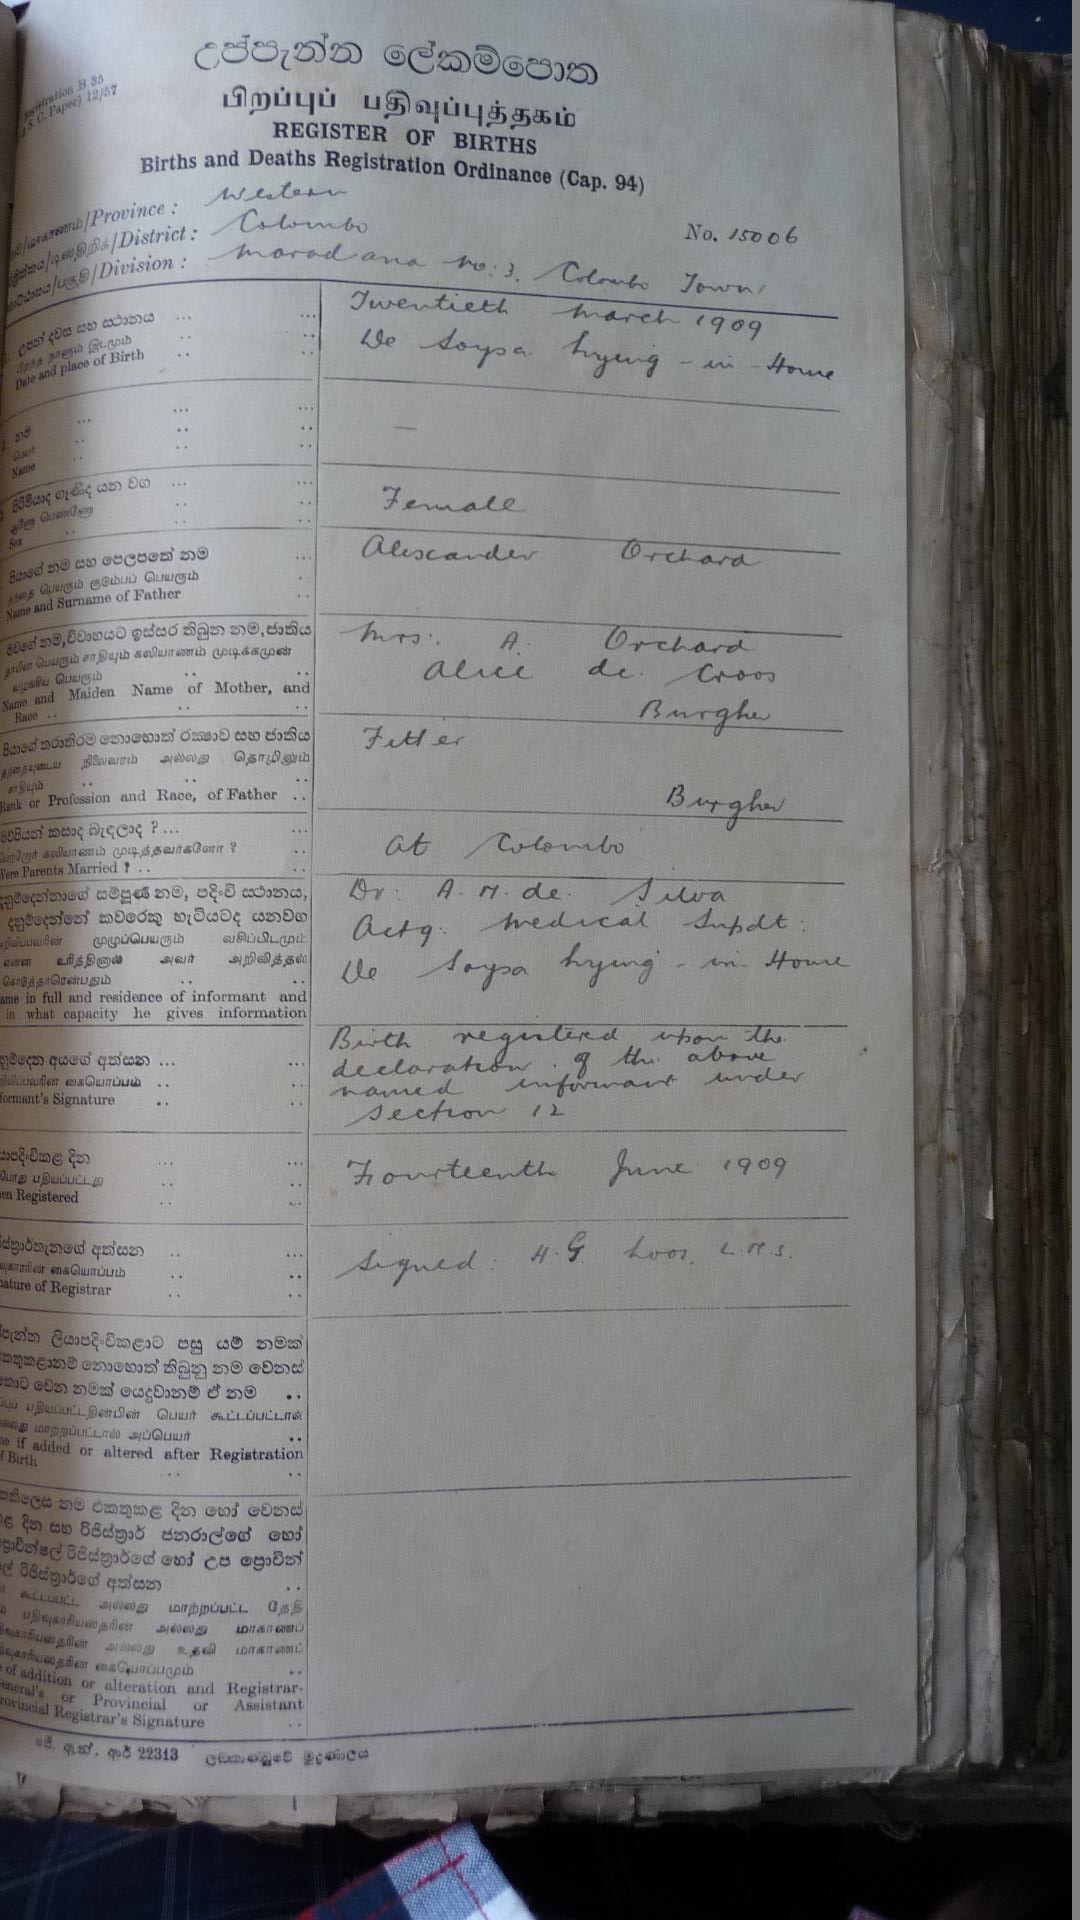 උප්පැන්න ලේකම්පොත
பிறப்புப் பதிவுப்புத்தகம்
REGISTER OF BIRTHS
Births and Deaths Registration Ordinance (Cap. 94)
Registration B 35
S. C. Paper) 12/57
/Province : Western
/District : Colombo
No. 15006
/Division : Maradana No: 3. Colombo Town
උපන් දවස සහ ස්ථානය ... ...
பிறந்த நாளும் இடமும்
Date and place of Birth
Twentieth March 1909
De Soysa Lying-in-Home
නම
பெயர்
Name
—
පිරිමියාද ගැණිද යන වග
ஆணோ பெண்ணோ
Sex
Female
පියාගේ නම සහ පෙලපතේ නම
தந்தை பெயரும் குடும்பப் பெயரும்
Name and Surname of Father
Alexander Orchard
මවගේ නම, විවාහයට ඉස්සර තිබුන නම, ජාතිය
தாயின் பெயரும் சாதியும் கலியாணம் முடிக்கமுன்
வழங்கிய பெயரும்
Name and Maiden Name of Mother, and
Race
Mrs: A. Orchard
Alice de Croos
Burgher
පියාගේ තරාතිරම නොහොත් රක්ෂාව සහ ජාතිය
தந்தையுடைய நிலைவரம் அல்லது தொழிலும்
சாதியும்
Rank or Profession and Race, of Father
Fitter
Burgher
මව්පියන් කසාද බැඳලාද ? ...
பெற்றோர் கலியாணம் முடித்தவர்களோ ?
Were Parents Married ?
At Colombo
සම්පූර්ණ නම, පදිංචි ස්ථානය,
දනුම්දෙන්නේ කවරෙකු හැටියටද යනවග
முழுப்பெயரும் வசிப்பிடமும்
என்ன உரித்தினால் அவர் அறிவித்தல்
கொடுத்தாரென்பதும்
ame in full and residence of informant and
in what capacity he gives information
Dr: A. M. de. Silva
Actg: Medical Supdt:
De Soysa Lying-in-Home
අයගේ අත්සන ...
கையொப்பம்
formant's Signature
Birth registered upon the
declaration of the above
named informant under
Section 12
ලියාපදිංචිකළ දින
போது பதியப்பட்டது
en Registered
Fourteenth June 1909
අත්සන
கையொப்பம்
nature of Registrar
Signed: H. G Loos. L.M.S.
ලියාපදිංචිකළාට පසු යම් නමක්
නොහොත් තිබුනු නම වෙනස්
වෙන නමක් යෙදුවානම් ඒ නම
பதியப்பட்டதின்பின் பெயர் கூட்டப்பட்டால்
மாற்றப்பட்டால் அப்பெயர்
ne if added or altered after Registration
f Birth
නම එකතුකළ දින හෝ වෙනස්
දින සහ රිජිස්ත්‍රාර් ජනරාල්ගේ හෝ
රිජිස්ත්‍රාර්ගේ හෝ උප ප්‍රොවින්
රිජිස්ත්‍රාර්ගේ අත්සන
கூட்டப்பட்ட அல்லது மாற்றப்பட்ட தேதி
அல்லது மாகாணப்
அல்லது உதவி மாகாணப்
கையொப்பமும்
of addition or alteration and Registrar-
eneral's or Provincial or Assistant
rovincial Registrar's Signature
ජේ. ඇන්. ආර් 22313 ලඞ්කාණ්ඩුවේ මුද්‍රණාලය